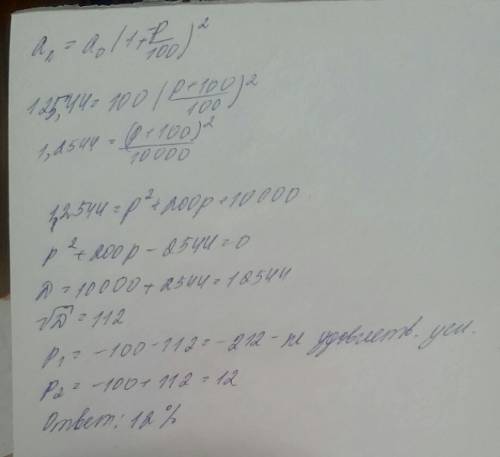 aₙ = a₀(1+p/100)²
125,44 = 100((p+100)/100)²
1,2544 = (p+100)²/10000
12544 = p²+200p+10000
p²+200p-2544=0
D = 10000+2544=12544
√D = 112
p₁ = -100-112=-212 - не удовлетв. усл.
p₂ = -100+112=12
Ответ: 12%